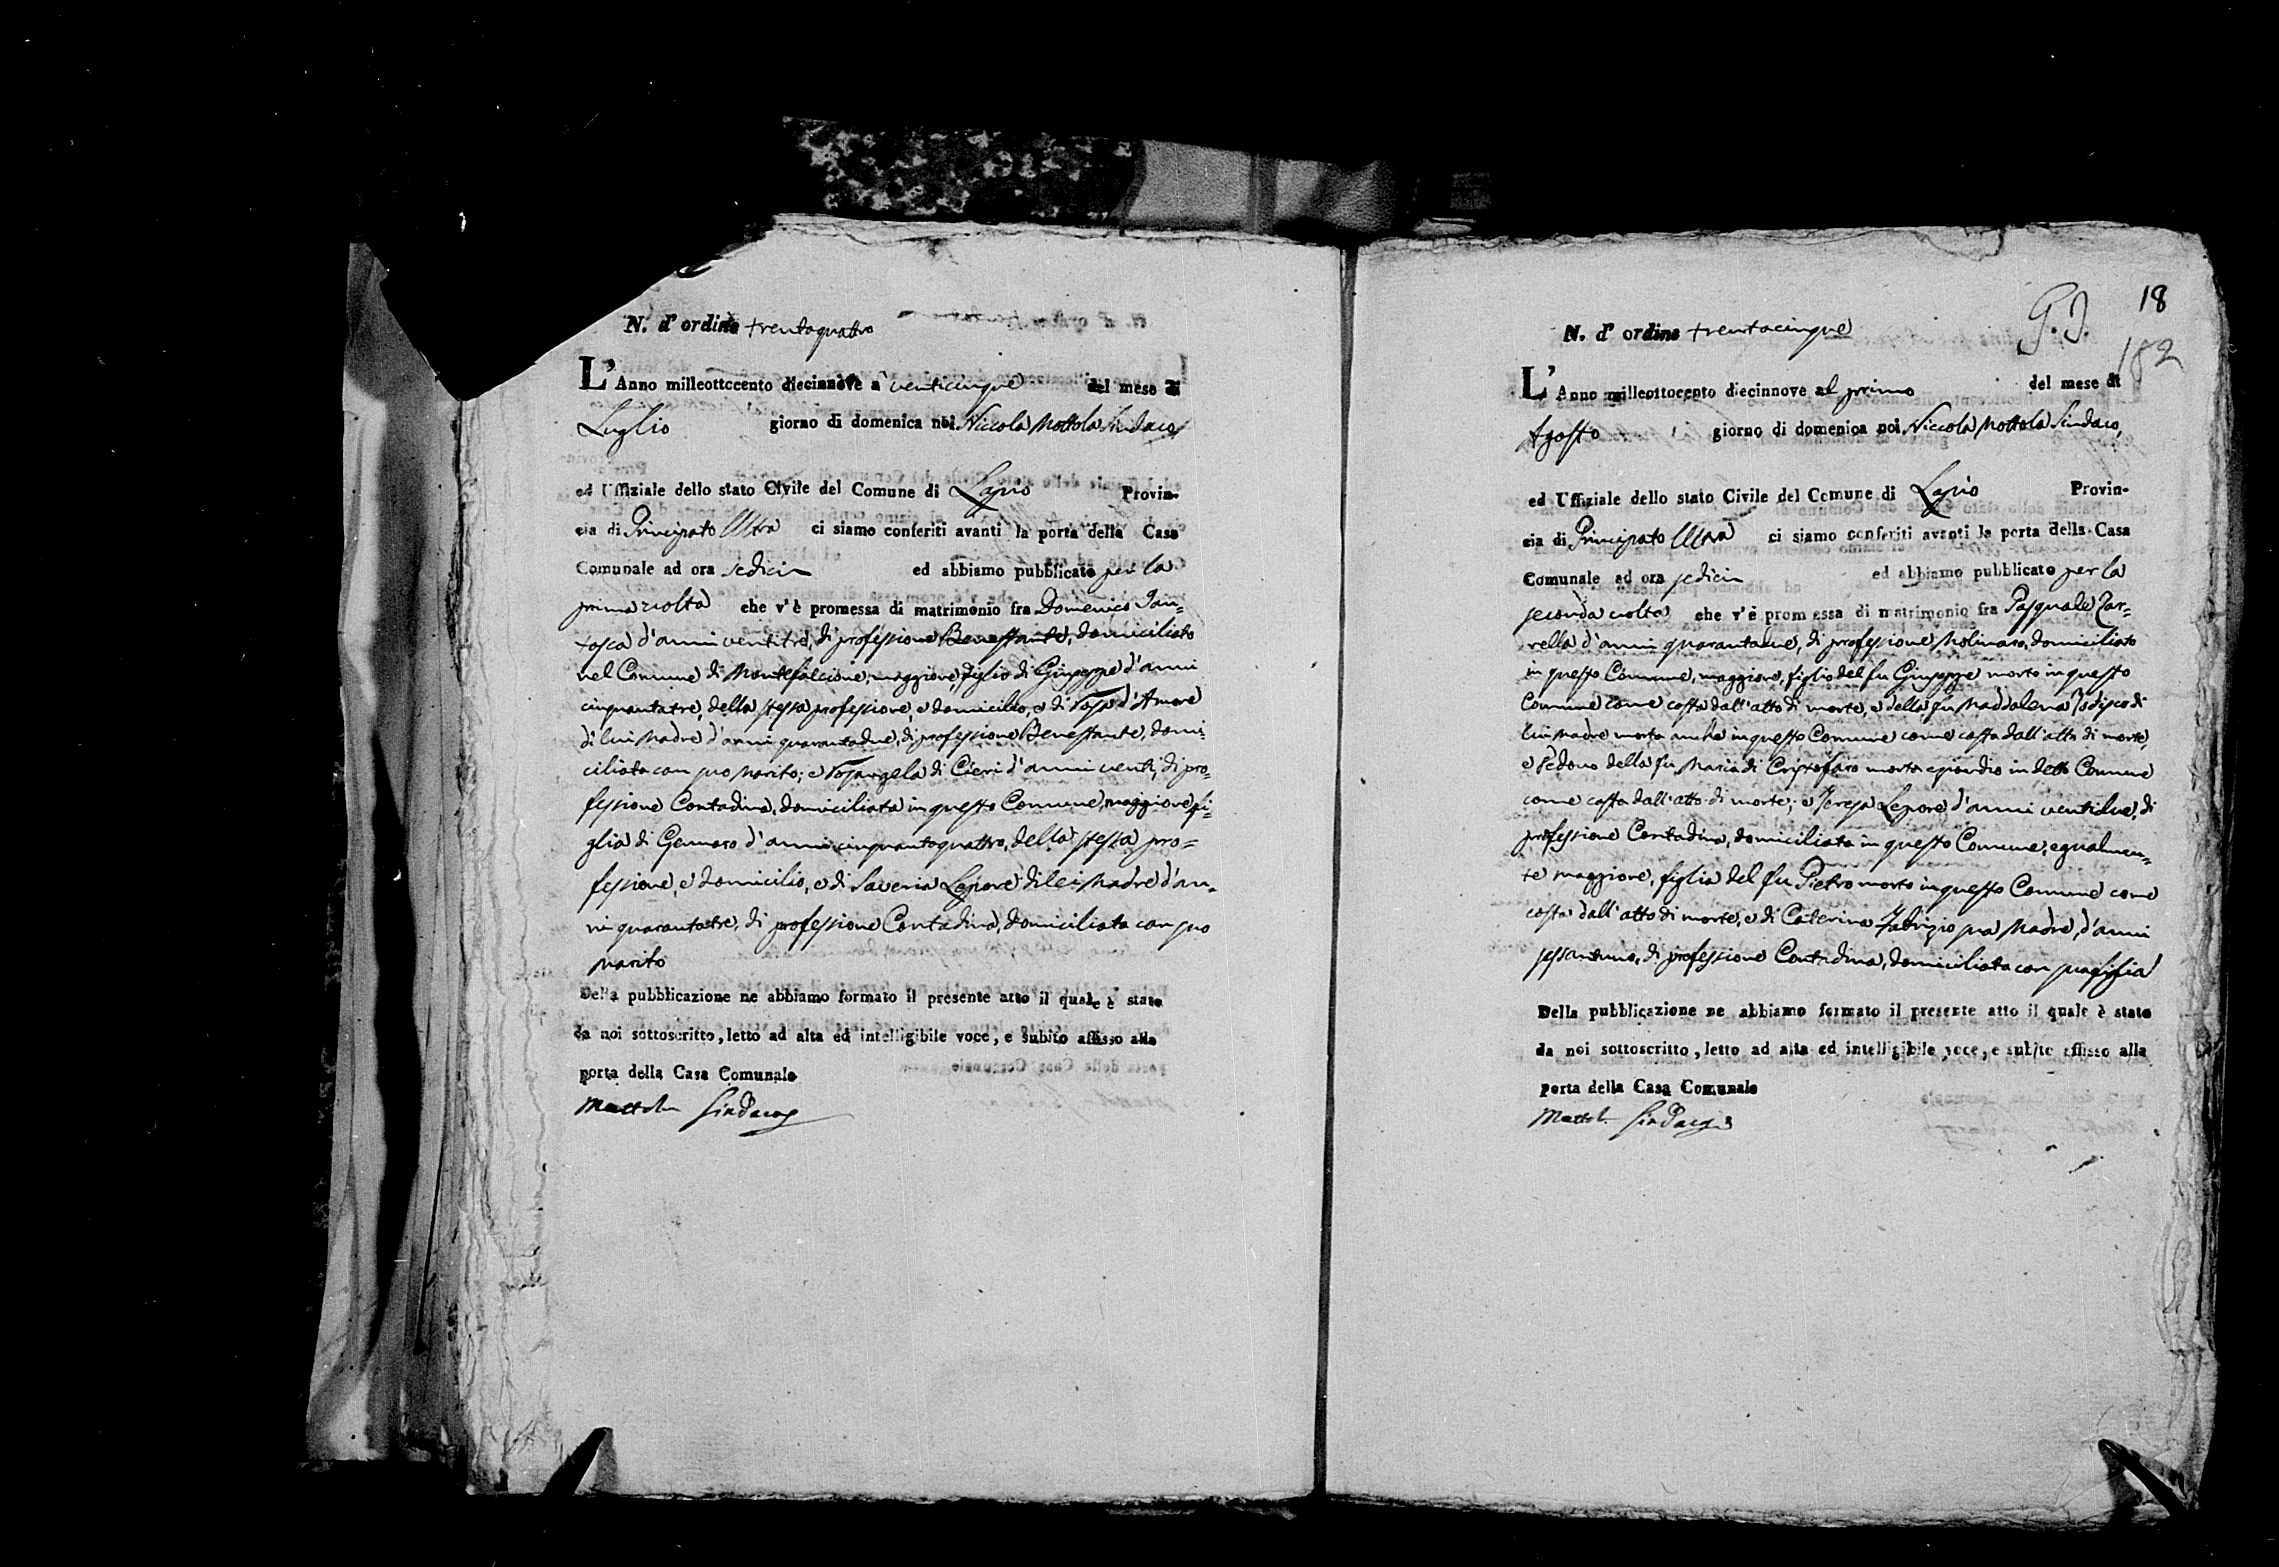 N. d' ordine trentaquattro
L' Anno milleottocento diecinnove a' venticinque del mese di
Luglio giorno di domenica noi Niccola Mottola Sindaco,
ed Uffiziale dello stato Civile del Comune di Lapio Provin-
cia di Principato Ultra ci siamo conferiti avanti la porta della Casa
Comunale ad ora sedici ed abbiamo pubblicato per la
prima volta che v'è promessa di matrimonio fra Domenico San=
tosca d'anni ventitre, di professione Benestante, domiciliato
nel Comune di Montefalcione, maggiore, figlio di Giuseppe d'anni
cinquantatre, della stessa professione, e domicilio, e di Rosa d'Amore
di lui Madre d'anni quarantadue, di professione Benestante, domi-
ciliata con suo Marito; e Rosangela di Cieri d'anni venti, di pro-
fessione Contadina, domiciliata in questo Comune, maggiore, fi-
glia di Gennaro d'anni cinquantaquattro, della stessa pro=
fessione, e domicilio, e di Saveria Lepore di lei Madre d'an-
ni quarantatre, di professione Contadina, domiciliata con suo
Marito
Della pubblicazione ne abbiamo formato il presente atto il quale è stato
da noi sottoscritto, letto ad alta ed intelligibile voce, e subito affisso alla
porta della Casa Comunale
Mottola Sindaco
G. J. 18
182
N. d' ordine trentacinque
L' Anno milleottocento diecinnove al primo del mese di
Agosto giorno di domenica noi Niccola Mottola Sindaco,
ed Uffiziale dello stato Civile del Comune di Lapio Provin-
cia di Principato Ultra ci siamo conferiti avanti la porta della Casa
Comunale ad ora sedici ed abbiamo pubblicato per la
seconda volta che v'è promessa di matrimonio fra Pasquale Zar=
rella d'anni quarantadue, di professione Molinaro, domiciliato
in questo Comune, maggiore, figlio del fu Giuseppe morto in questo
Comune come costa dall'atto di morte, e della fu Maddalena Rodisco di
lui Madre morta anche in questo Comune come costa dall'atto di morte,
e Vedovo della fu Maria di Cristofaro morta in detto Comune
come costa dall'atto di morte; e Teresa Lepore d'anni ventidue, di
professione Contadina, domiciliata in questo Comune, egualmen-
te maggiore, figlia del fu Pietro morto in questo Comune come
costa dall'atto di morte, e di Caterina Fabrizio sua Madre, d'anni
sessantuno, di professione Contadina, domiciliata con sua figlia
Della pubblicazione ne abbiamo formato il presente atto il quale è stato
da noi sottoscritto, letto ad alta ed intelligibile voce, e subito affisso alla
porta della Casa Comunale
Mottola Sindaco